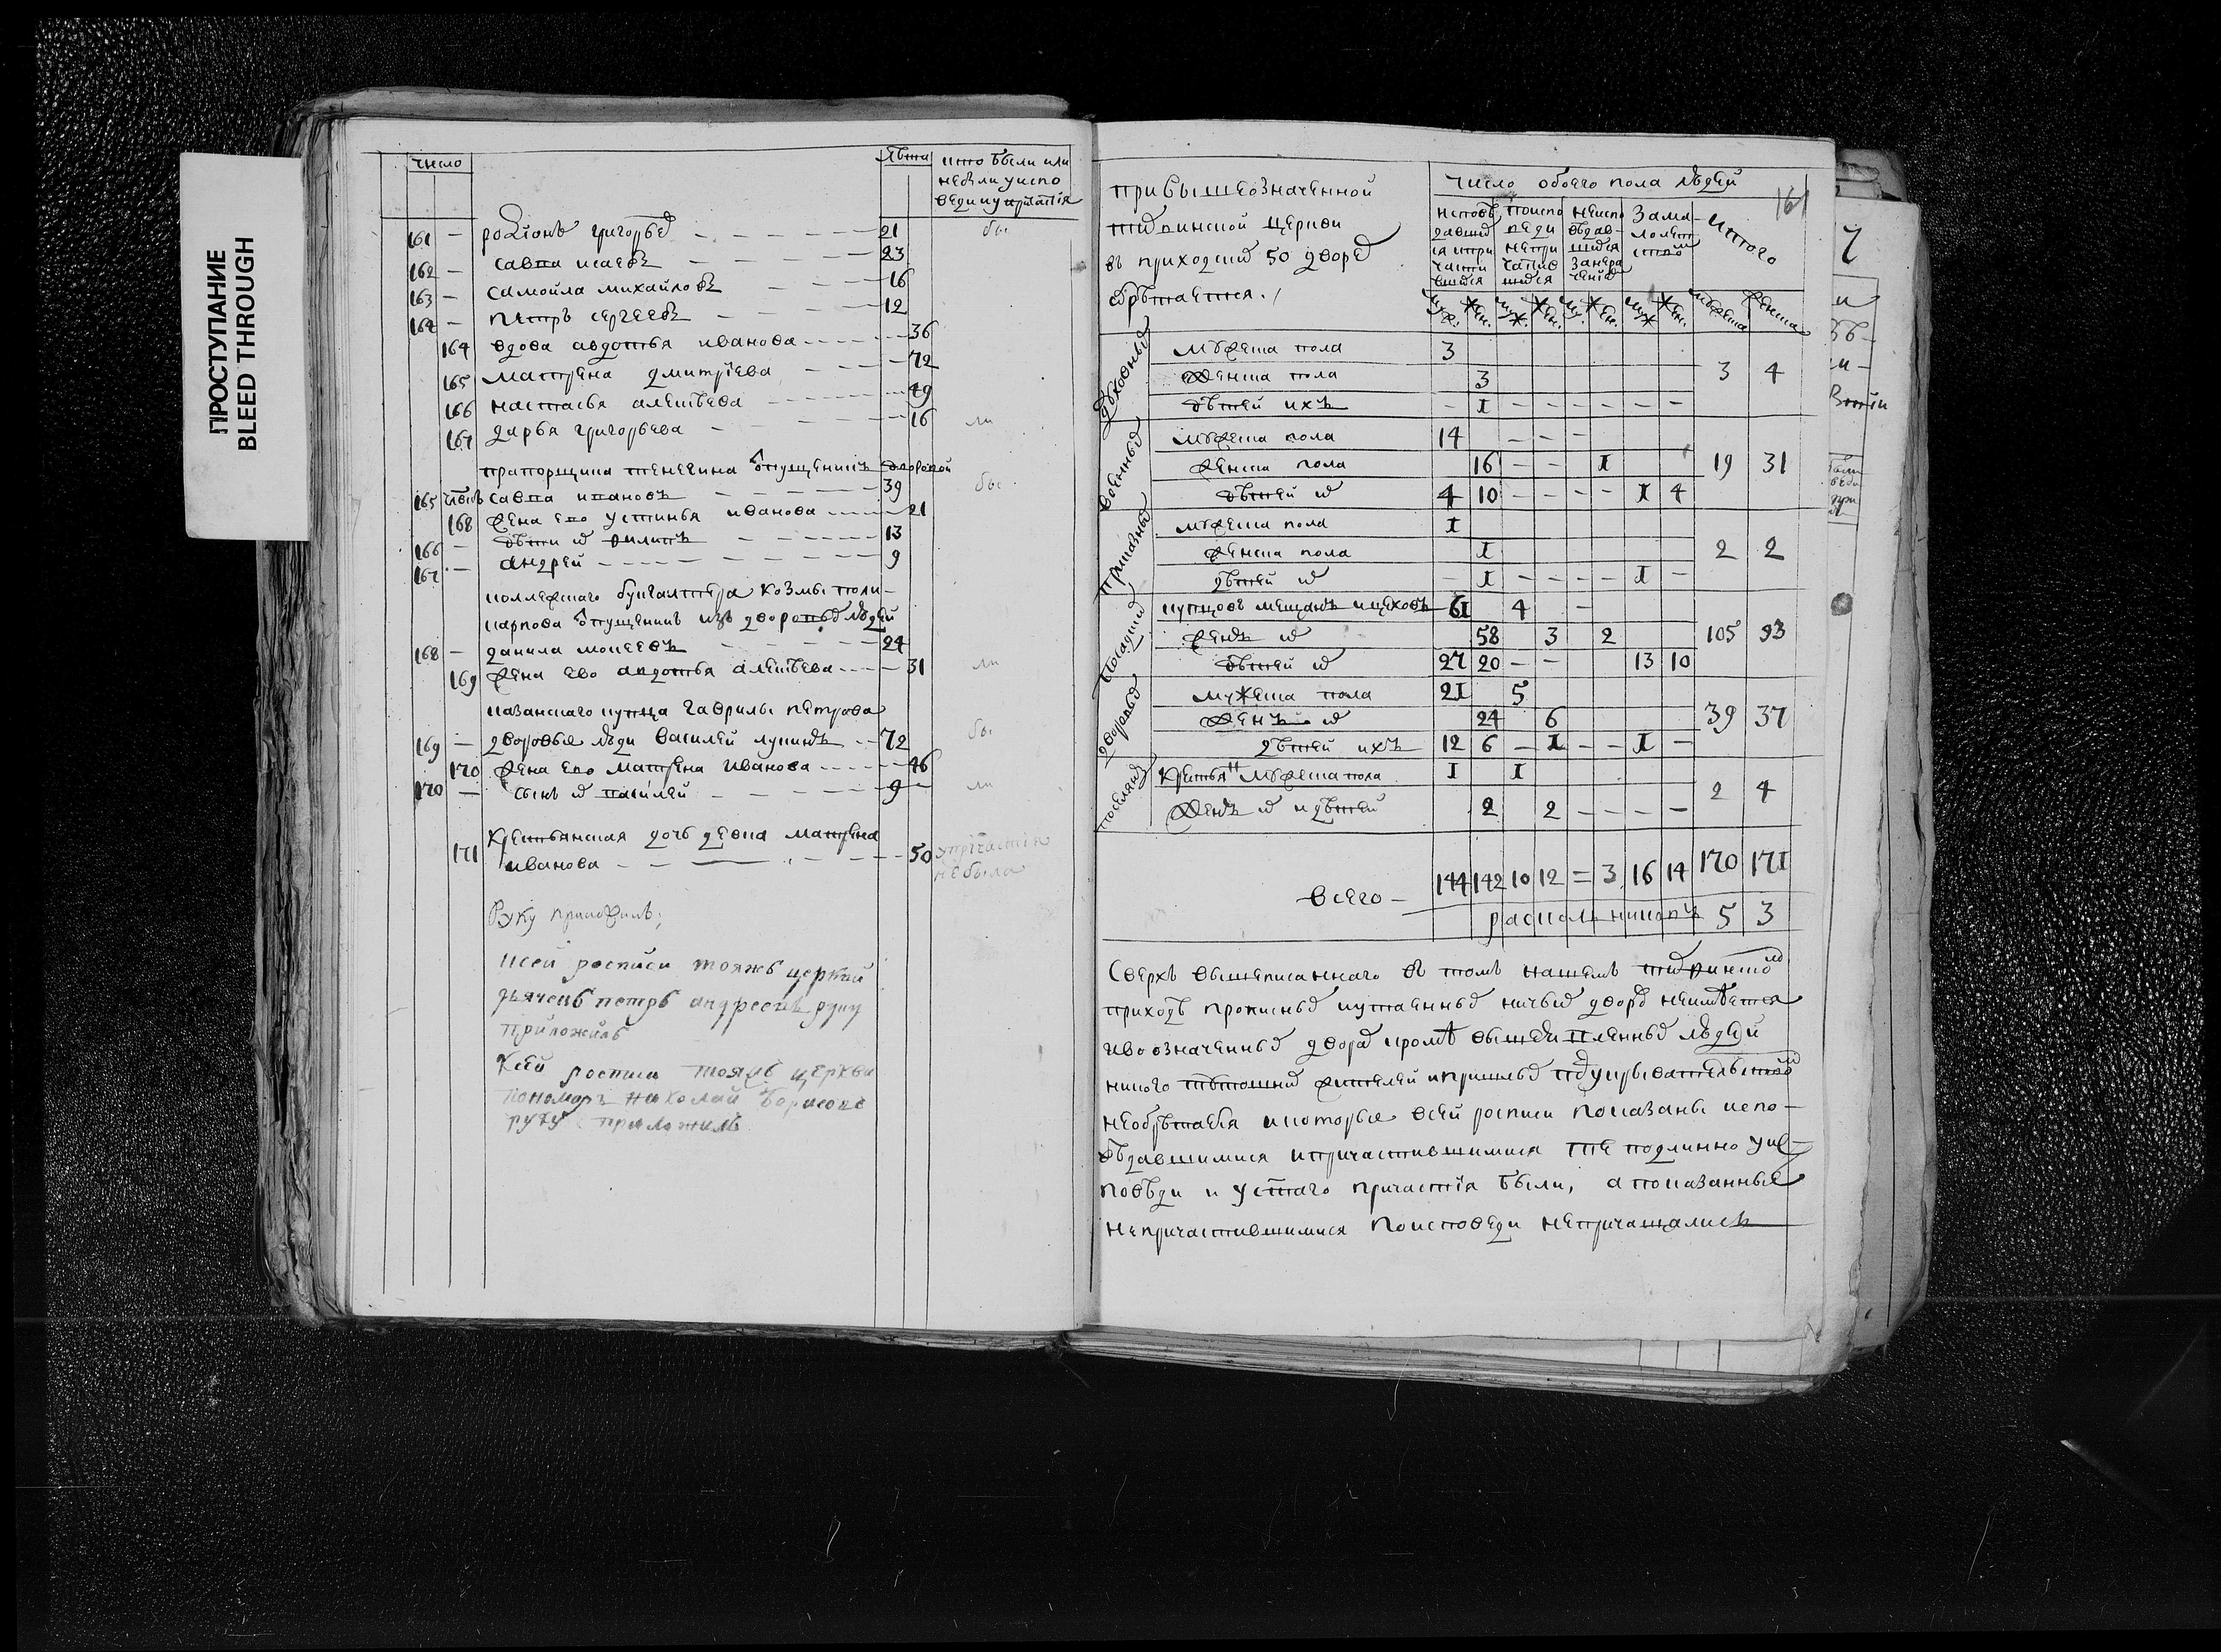 ПРОСТУПАНИЕ
BLEED THROUGH
число
лѣта
кто были или
небыли уиспо
веди иупричастiя
161 — родiонъ григорьев 21 бы
162 — савва исаевъ 23
163 — самойла михайловъ 16
164 — петръ сергеевъ 12
164 вдова авдотья иванова 36
165 матрена дмитрiева 72
166 настасья алеѯѣева 49
167 дарья григорьева 16 ли
прапорщика
165 савва ивановъ 39 бы
168 жена ево устинья иванова 21
166 — дѣти их филипъ 13
167 — андрей 9
коллежскаго бухгалтера козмы поли-
карпова отпущенникъ изъ дворовых людей
168 — данила моисеевъ 24
169 жена ево авдотья алеѯѣева 31 ли
казанскаго купца гаврилы петрова
169 — дворовые люди василей лукинъ 72 бы
170 жена ево матрена иванова 46
170 — сынъ их василей 9 ли
крестьянская дочь девка матрена
171 иванова 50 упричастiя
небыла
Руку приложилъ
ксей росписи тояжъ церкви
дьячекъ петръ андреевъ руку
приложилъ
ксей росписи тояжъ церкви
пономарь николай борисовъ
руку приложилъ
161
привышеозначенной
тихвинской церкви
въ приходских 50 дворах
обрѣтается
число обоего пола людей
исповѣ поиспо неиспо Зама-
давших веди вѣдав- лолет
ся и при непри шихся ством
части частив Занера
вшихся шихся ченiем
итого
муж. жен. муж. жен. му. жен. муж жен. мужеска женска
духовных
мужеска пола 3
женска пола 3 3 4
дѣтей ихъ — 1 — — — — — —
военных
мужеска пола 14 — — —
женска пола 16 — — 1 19 31
дѣтей их 4 10 — — — — 1 4
приказных
мужеска пола 1
женска пола 1 2 2
дѣтей их — 1 — — — — 1 —
посадских
купцовъ мещанъ ицеховъ 61 4 —
женъ их 58 3 2 105 93
дѣтей их 27 20 — — 13 10
дворовых
мужеска пола 21 5
женъ их 24 6 39 37
дѣтей ихъ 12 6 — 1 — — 1 —
поселян
крестьян мужеска пола 1 1
женъ их и дѣтей 2 2 — — — — 2 4
всего — 144 142 10 12 = 3 16 14 170 171
раскольниковъ 5 3
Сверхъ вышеписаннаго въ томъ нашемъ тихвинском
приходѣ прописных иутаенных ничьих дворов неимѣется
ивоозначенных дворах кромѣ людей
никого жителей ипришлых подукрывательством
необрѣтается икоторые всей росписи показаны испо-
вѣдавшимися ипричастившимися тѣ подлинно уис-
повѣди и устаго причастiя были, апоказанные
непричастившимися поисповеди непричащались